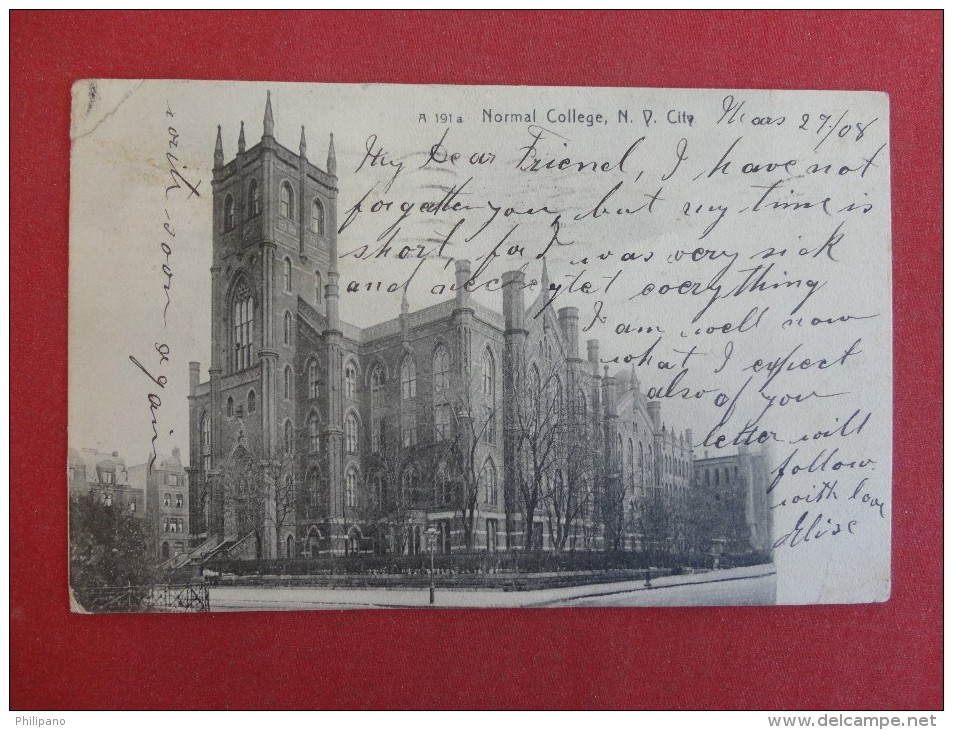 A 191a Normal College, N. Y. City
Mars 27/08
My Dear Friend, I have not
forgatten you, but my time is
short, for I was very sick
and neclegtet everything
I am well now
what I expect
also of you
letter will
follow.
with love
Elise
writh soon again
Philipano
www.delcampe.net